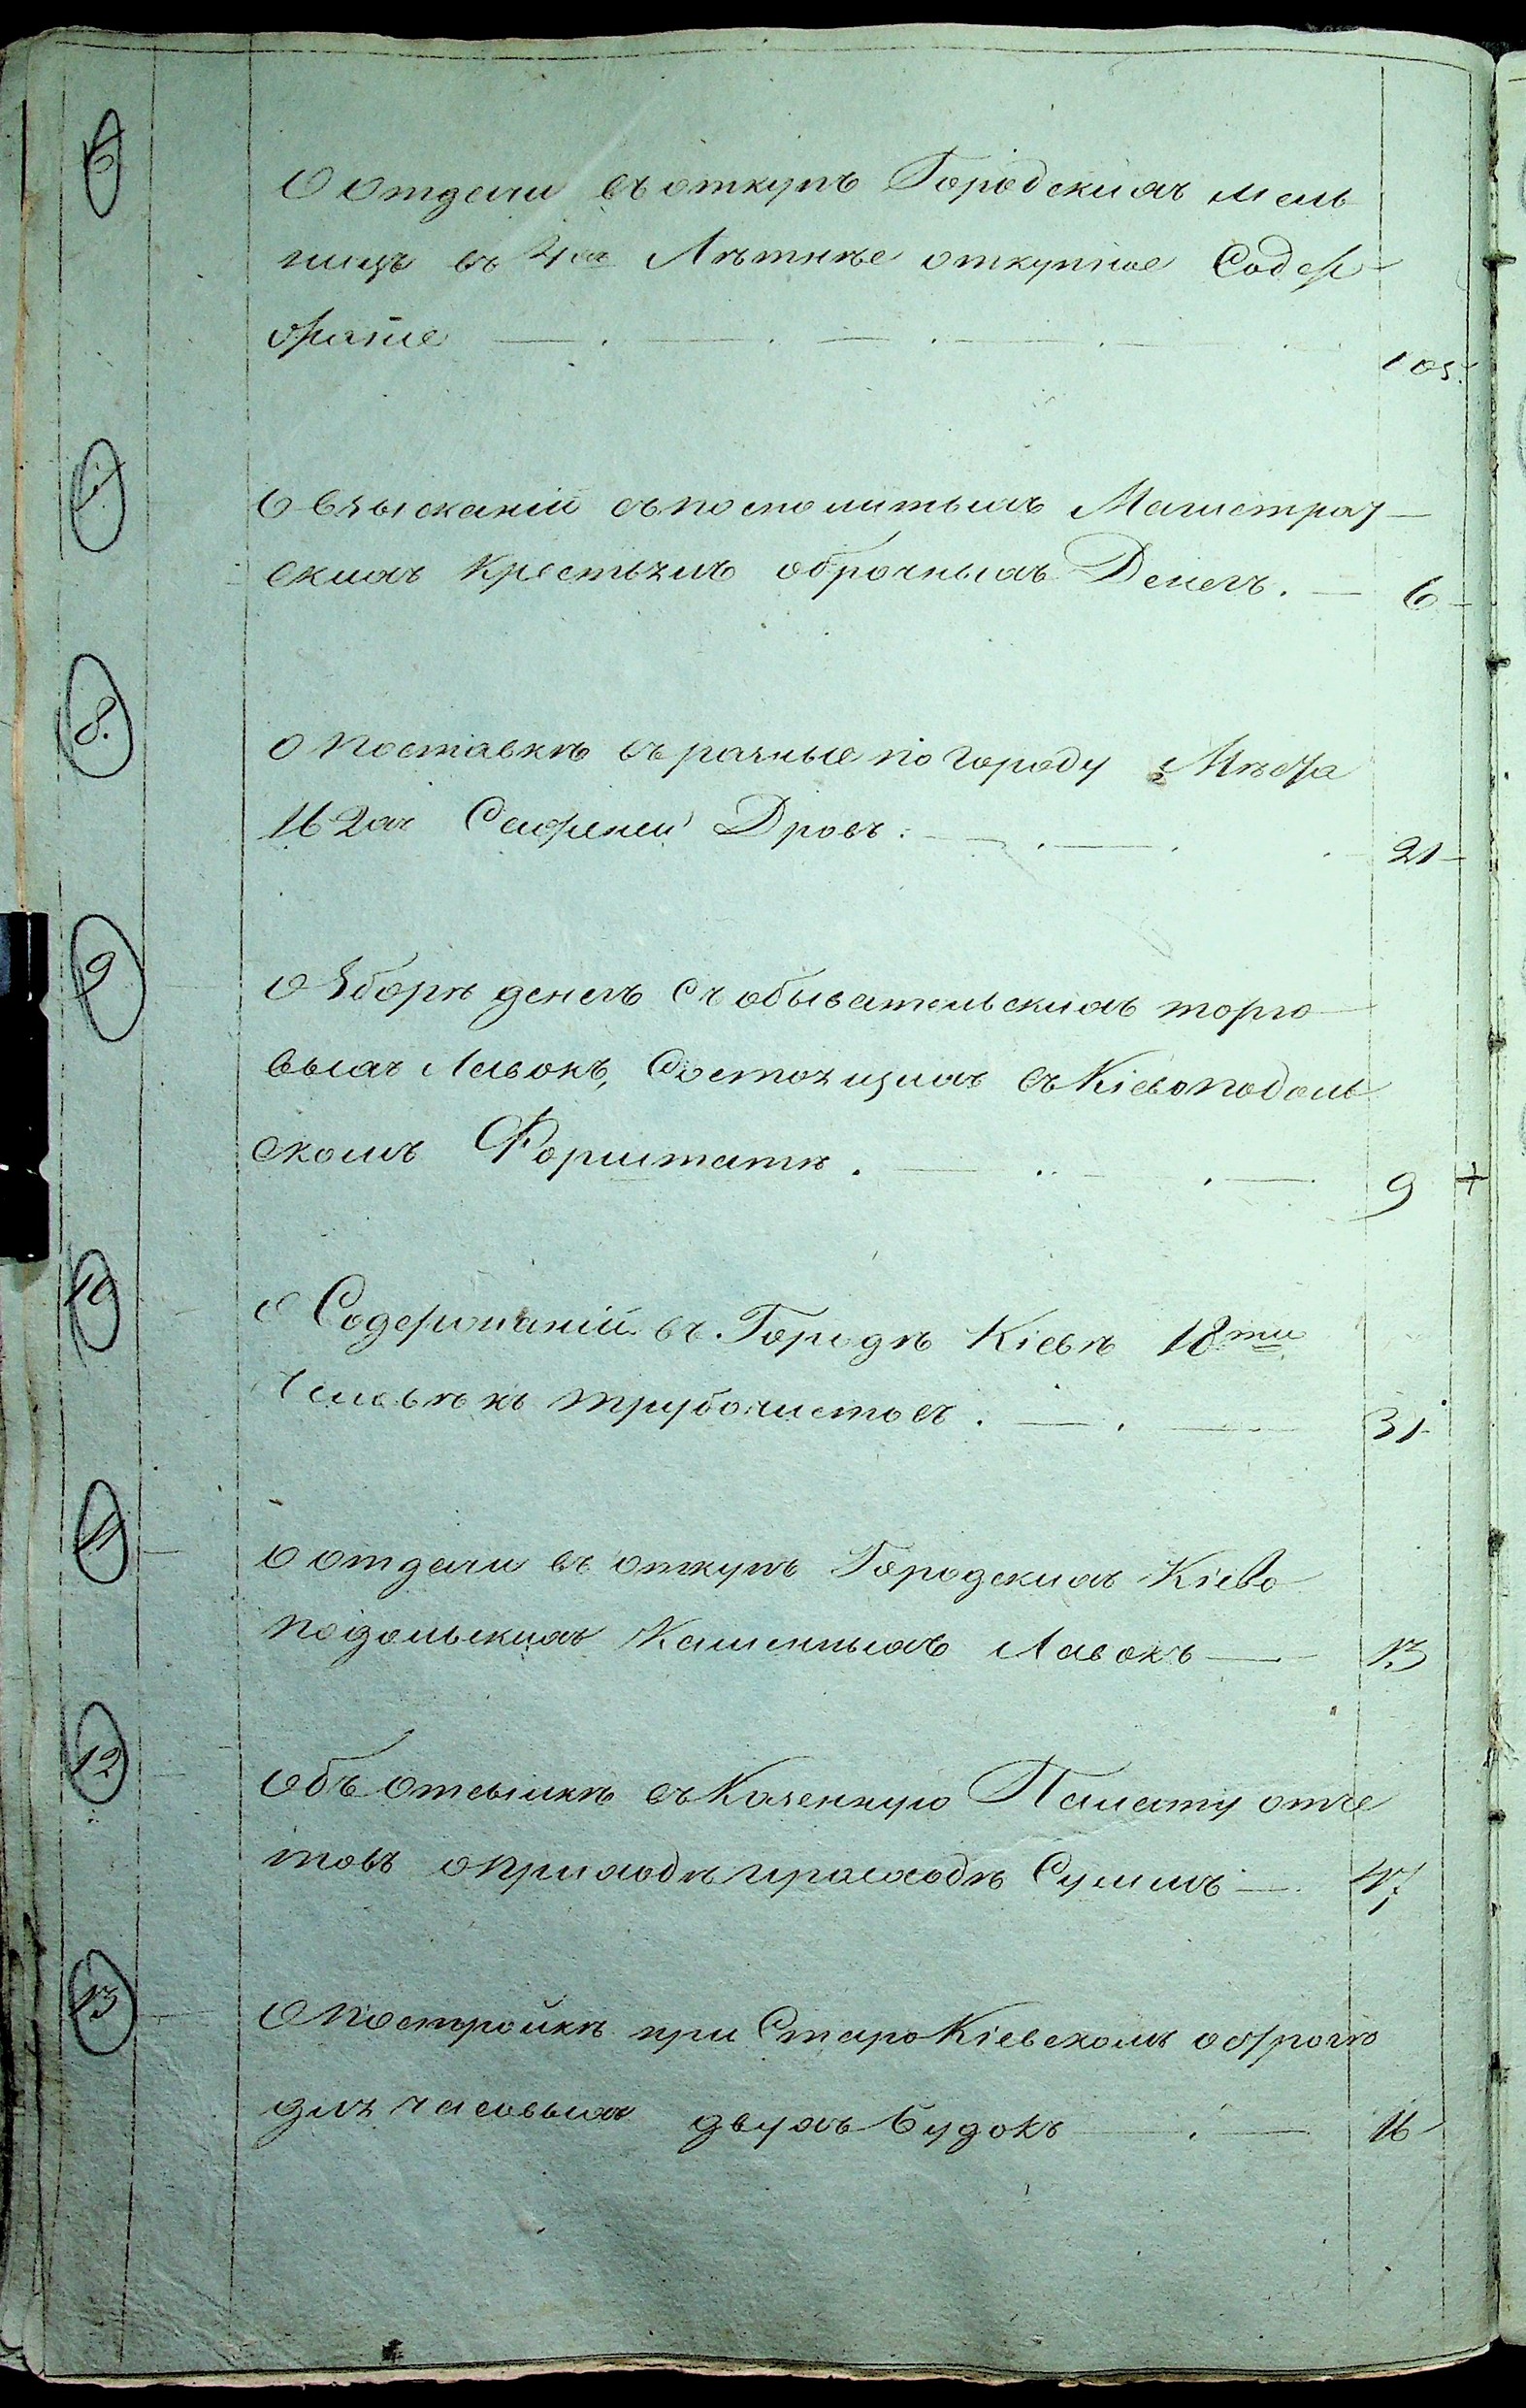 6
О отдачи въ откупъ Городскихъ мель
ницъ въ 4хъ Лѣтнѣе откупное Содер
жаніе
105.
7
О взысканіи съ посполитыхъ Магистрат
скихъ крестьянъ оброчныхъ Денегъ.
6
8.
О поставкѣ въ разные по городу Мѣста
162хъ Саженей Дровъ.
21
9
О Зборѣ денегъ съ обывательскихъ торго
выхъ Лавокъ, Состоящихъ въ Кіевоподоль
скомъ Форштатѣ.
9 +
10
О Содержаніи въ Городѣ Кіевѣ 18ти
Человѣкъ трубочистовъ.
31
11
О отдачи въ откупъ Городскихъ Кіево
подольскихъ Каменныхъ Лавокъ
13
12
Объ отсылкѣ въ Казенную Палату отче
товъ о приходѣ и расходѣ Суммъ
47
13
О постройкѣ при Старокіевскомъ острогѣ
для часовыхъ двухъ будокъ
16